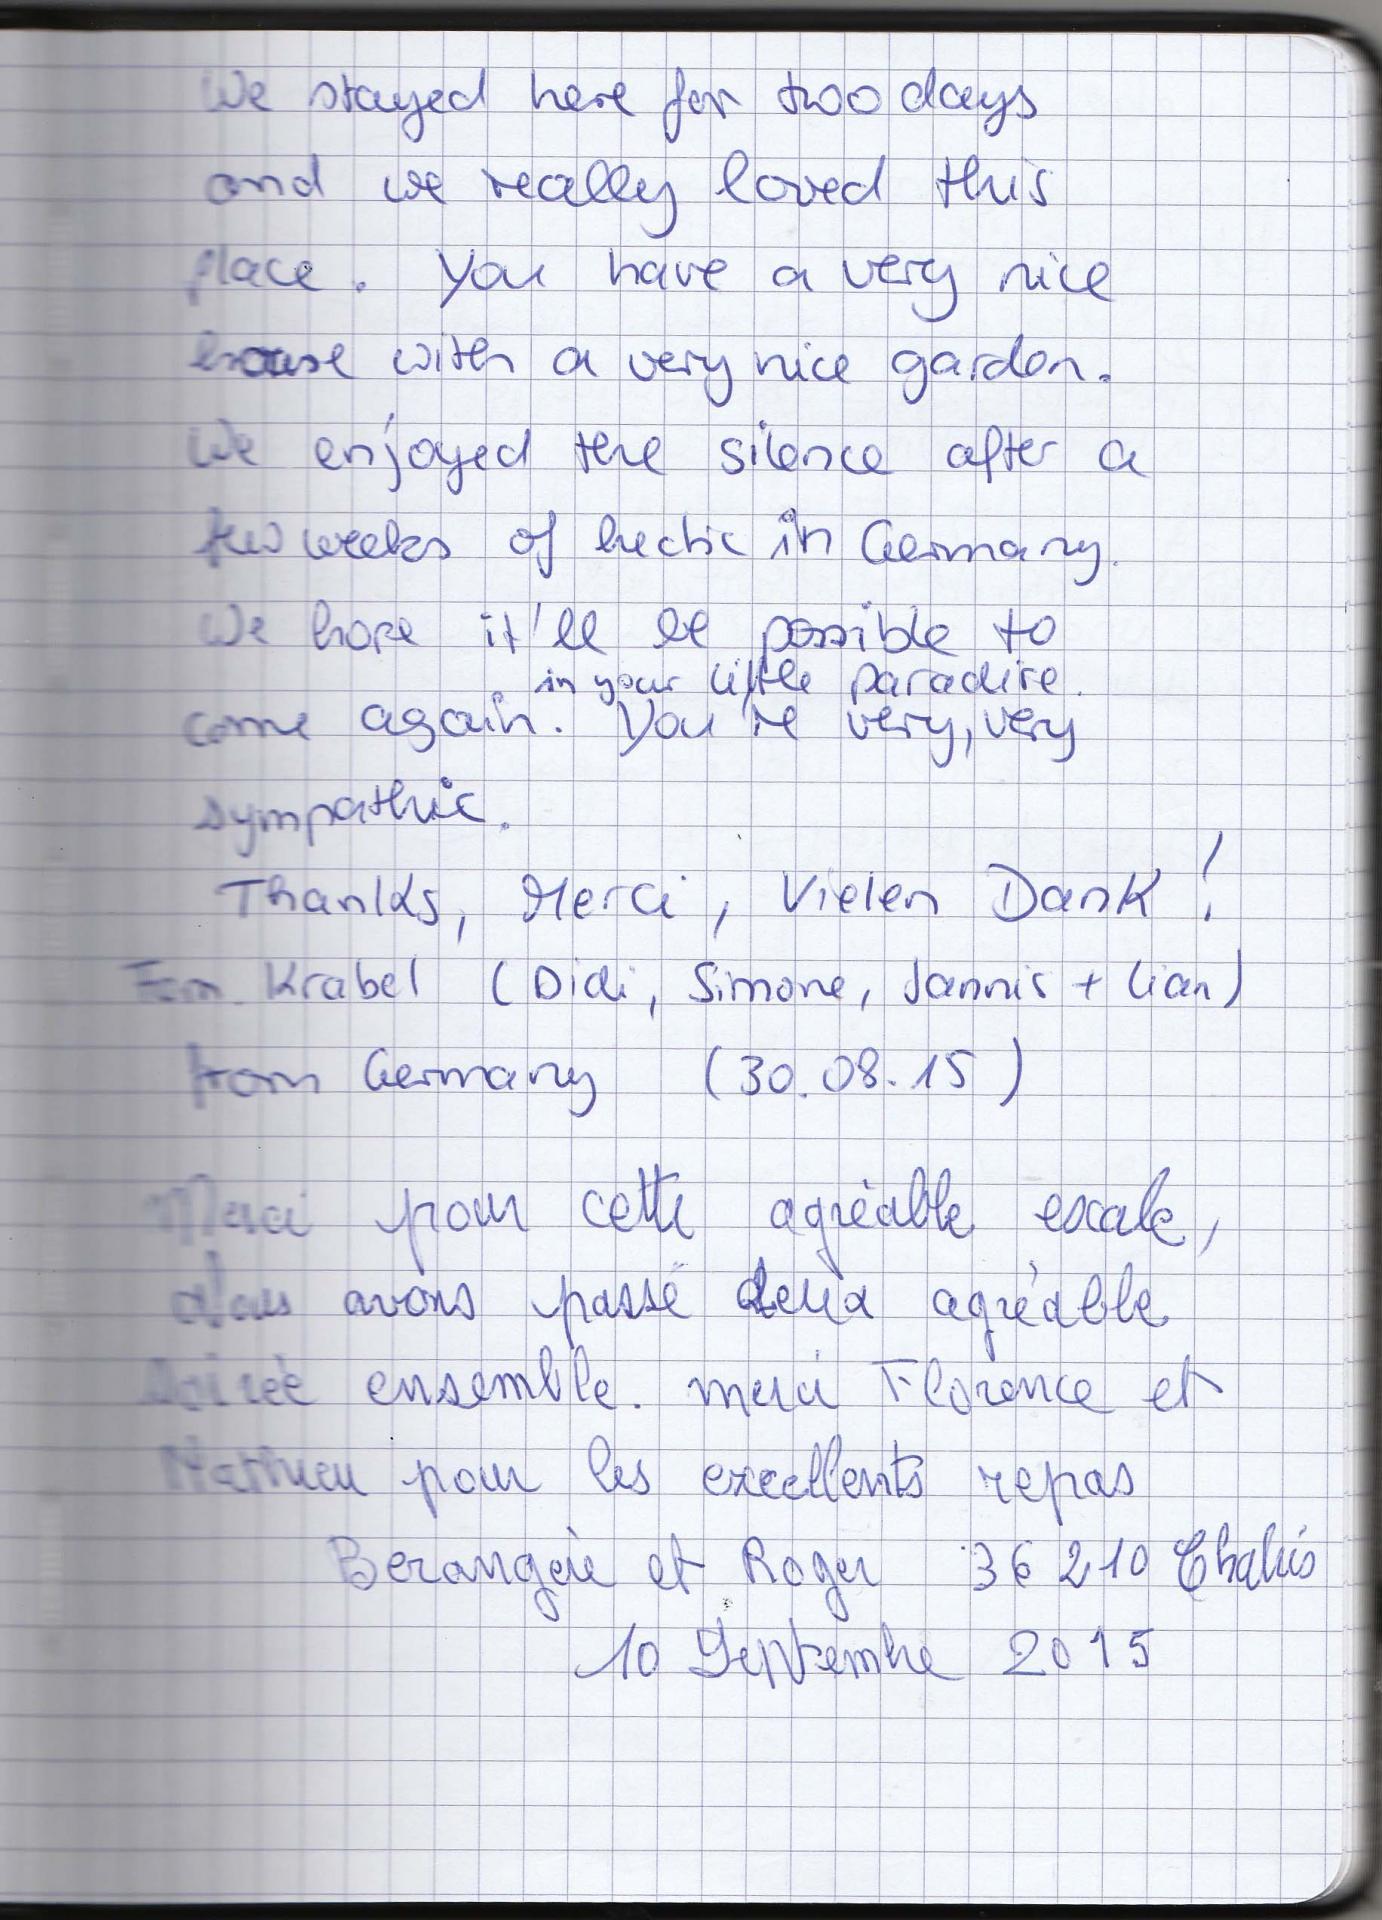 We stayed here for two days
and we really loved this
place. You have a very nice
house with a very nice garden.
We enjoyed the silence after a
few weeks of hectic in Germany.
We hope it'll be possible to
in your little paradise.
come again. You're very, very
sympathic.
Thanks, Merci, Vielen Dank!
Fam. Krabel (Didi, Simone, Jannis + Lian)
from Germany (30.08.15)
Merci pour cette agréable escale,
Nous avons passé deux agréable
soirée ensemble. merci Florence et
Mathieu pour les excellents repas
Berangère et Roger 36 210 Chabris
10 Septembre 2015